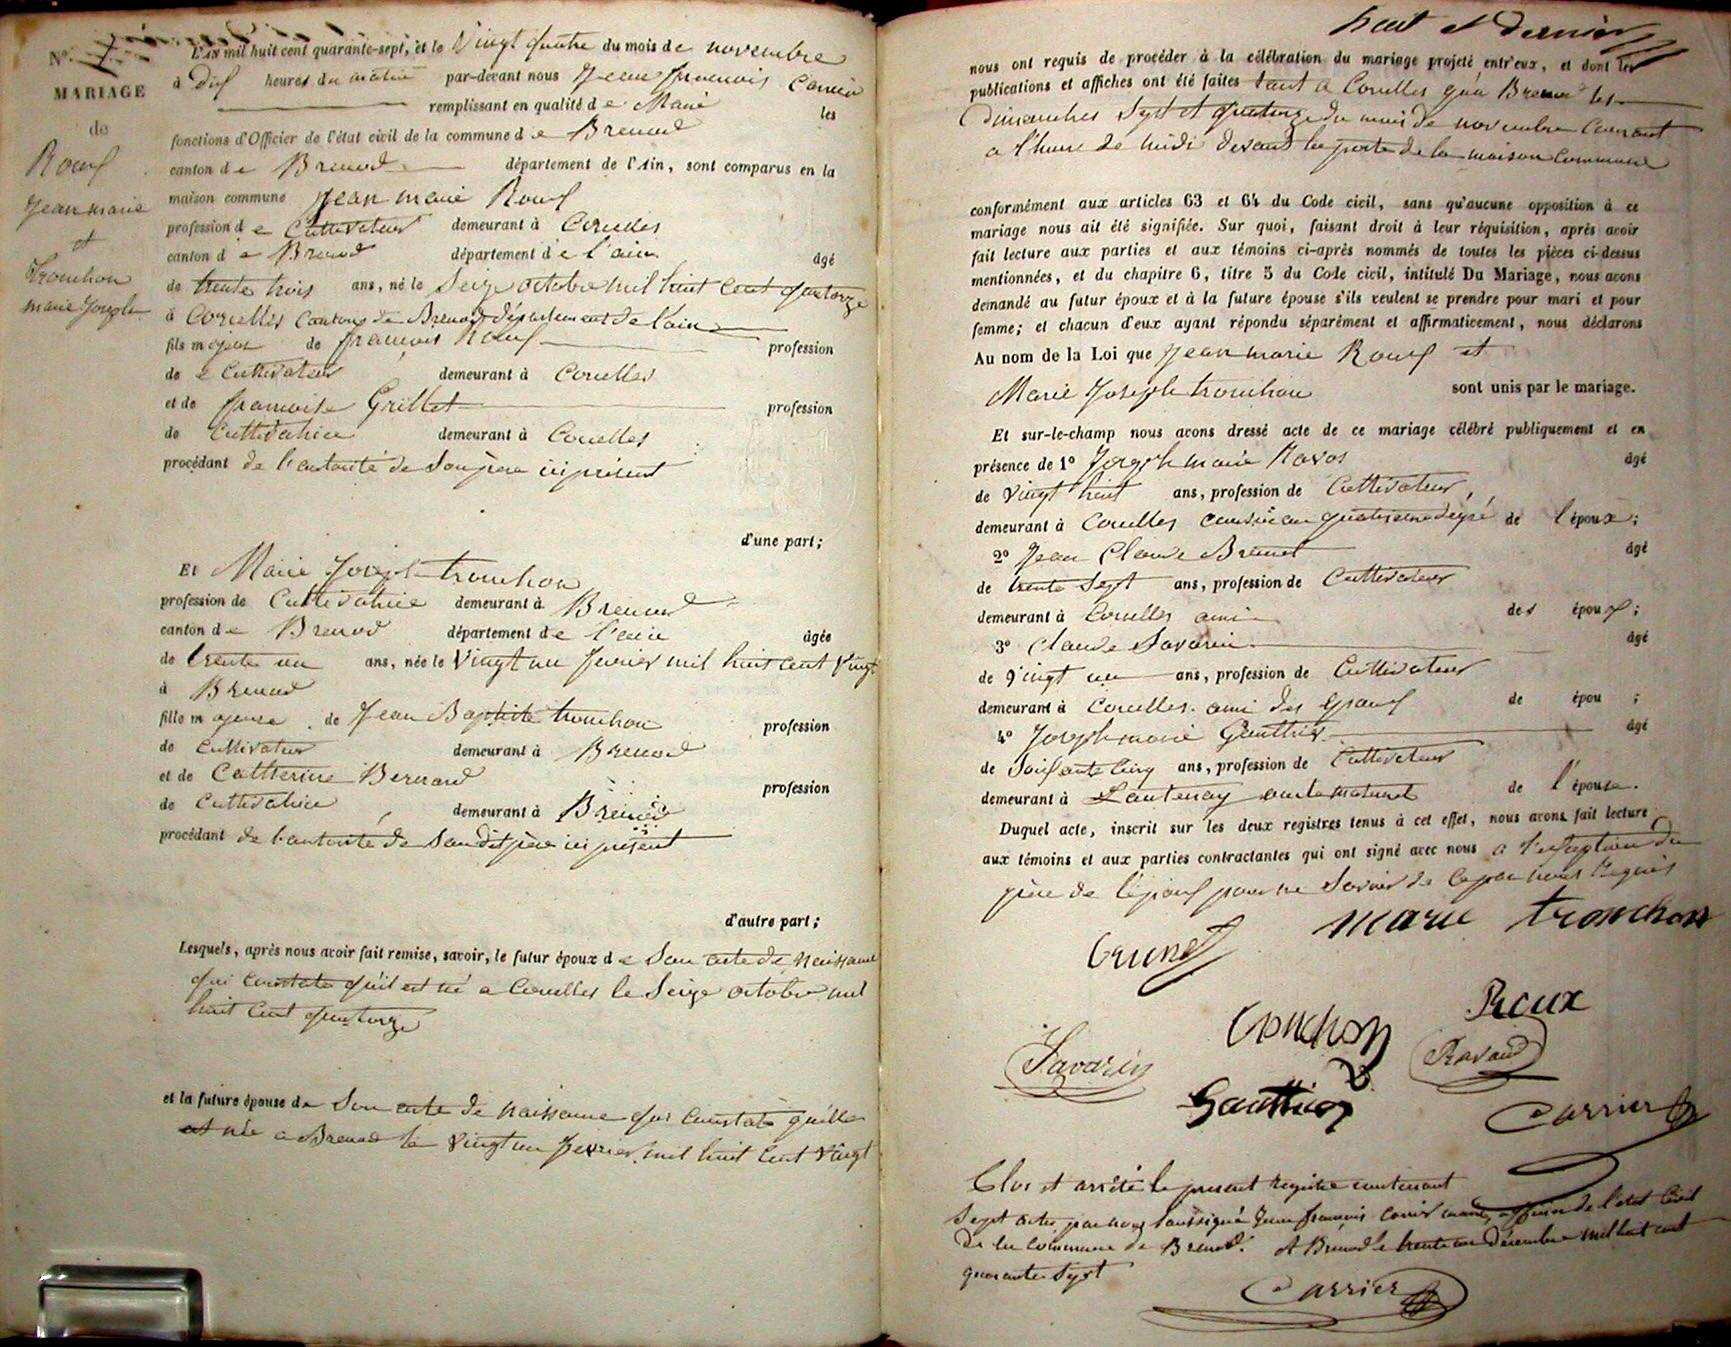 N° 7
MARIAGE
de
Roux
Jean marie
et
Tronchon
marie Joseph
L'AN mil huit cent quarante-sept, et le Vingt quatre du mois de novembre
à dix heures du matin par-devant nous Jean francois Carrier
remplissant en qualité de Maire les
fonctions d'Officier de l'état civil de la commune de Brenod
canton de Brenod département de l'Ain, sont comparus en la
maison commune Jean marie Roux
profession de Cultivateur demeurant à Corcelles
canton de Brenod département de l'ain âgé
de trente trois ans, né le Seize octobre mil huit cent quatorze
à Corcelles Canton de Brenod département de l'ain
fils majeur de francois Roux profession
de Cultivateur demeurant à Corcelles
et de francoise Grillet profession
de Cultivatrice demeurant à Corcelles
procédant de l'autorité de Son père ici présent
d'une part;
Et Marie Joseph tronchon
profession de Cultivatrice demeurant à Brenod
canton de Brenod département de l'ain âgée
de trente un ans, née le Vingt un fevrier mil huit cent Vingt
à Brenod
fille majeure de Jean Baptiste tronchon profession
de Cultivateur demeurant à Brenod
et de Catherine Bernard profession
de Cultivatrice demeurant à Brenod
procédant de l'autorité de Son dit père ici présent
d'autre part;
Lesquels, après nous avoir fait remise, savoir, le futur époux de Son acte de Naissance
qui constate qu'il est né a Corcelles le Seize octobre mil
huit cent quatorze
et la future épouse de Son acte de Naissance qui constate qu'elle
est née a Brenod le Vingt un fevrier mil huit cent Vingt
huit et dernier
nous ont requis de procéder à la célébration du mariage projeté entr'eux, et dont les
publications et affiches ont été faites tant a Corcelles qu'a Brenod les
Dimanches Sept et quatorze du mois de novembre Courant
a l'heure de midi devant la porte de la maison Commune
conformément aux articles 63 et 64 du Code civil, sans qu'aucune opposition à ce
mariage nous ait été signifiée. Sur quoi, faisant droit à leur réquisition, après avoir
fait lecture aux parties et aux témoins ci-après nommés de toutes les pièces ci-dessus
mentionnées, et du chapitre 6, titre 5 du Code civil, intitulé Du Mariage, nous avons
demandé au futur époux et à la future épouse s'ils veulent se prendre pour mari et pour
femme; et chacun d'eux ayant répondu séparément et affirmativement, nous déclarons
Au nom de la Loi que Jean marie Roux et
Marie Joseph tronchon sont unis par le mariage.
Et sur-le-champ nous avons dressé acte de ce mariage célébré publiquement et en
présence de 1° Joseph marie Ravos âgé
de Vingt huit ans, profession de Cultivateur,
demeurant à Corcelles cousin au quatrieme degré de l'époux;
2° Jean Claude Brunet âgé
de trente Sept ans, profession de Cultivateur
demeurant à Corcelles ami des époux;
3° Claude Savarin âgé
de Vingt un ans, profession de Cultivateur
demeurant à Corcelles ami des Epoux de épou ;
4° Joseph marie Gauthier âgé
de Soixante Cinq ans, profession de Cultivateur
demeurant à Lantenay oncle maternel de l'épouse.
Duquel acte, inscrit sur les deux registres tenus à cet effet, nous avons fait lecture
aux témoins et aux parties contractantes qui ont signé avec nous a l'exception du
père de l'époux pour ne Savoir de ce par nous Requis
Brunet marie tronchon
tronchon Roux
Savarin Ravaud
Gauthier Carrier
Clos et arrêté le présent registre contenant
Sept actes par nous Soussigné Jean francois Carrier maire, officier de l'etat Civil
de la Commune de Brenod. A Brenod le trente un Décembre mil huit cent
quarante Sept
Carrier